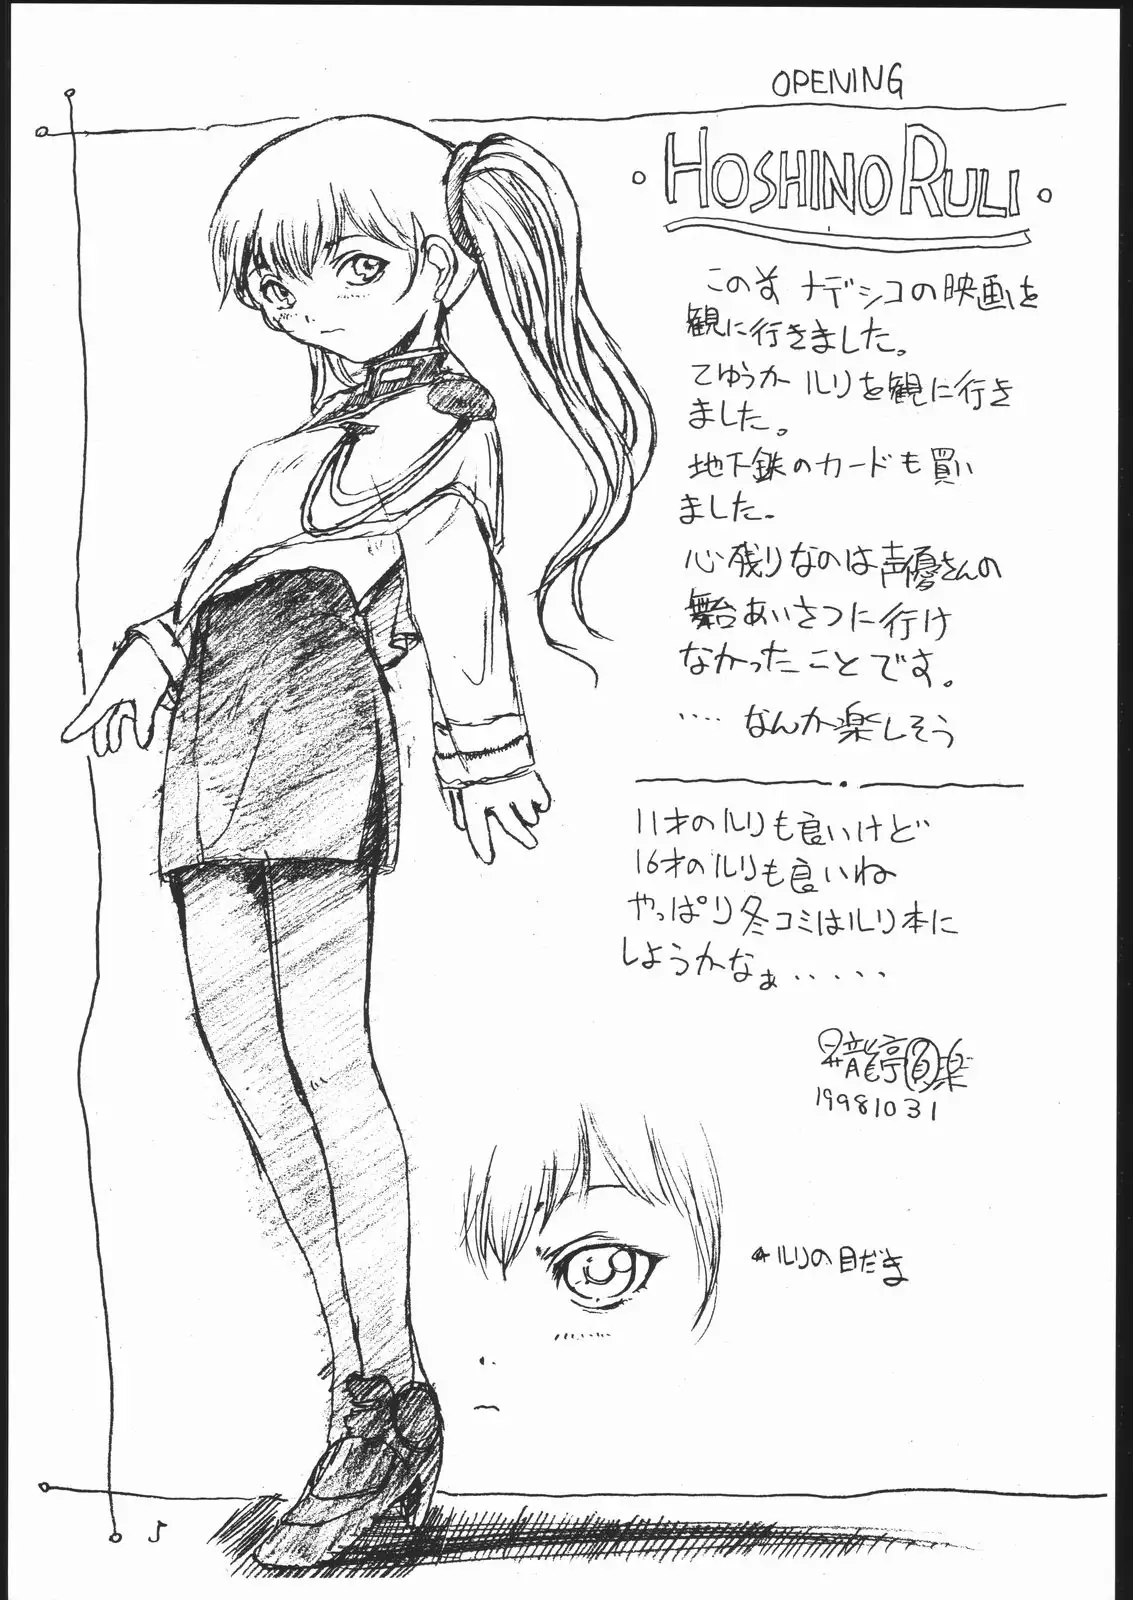 OPENING
HOSHINO RULI
この前 ナデシコの映画を
観に行きました。
てゆうか ルリを観に行き
ました。
地下鉄のカードも買い
ました。
心残りなのは声優さんの
舞台あいさつに行け
なかったことです。
・・・・ なんか楽しそう
11才のルリも良いけど
16才のルリも良いね
やっぱり冬コミはルリ本に
しようかなぁ・・・・・
龍亭 楽
19981031
ルリの目だま
5